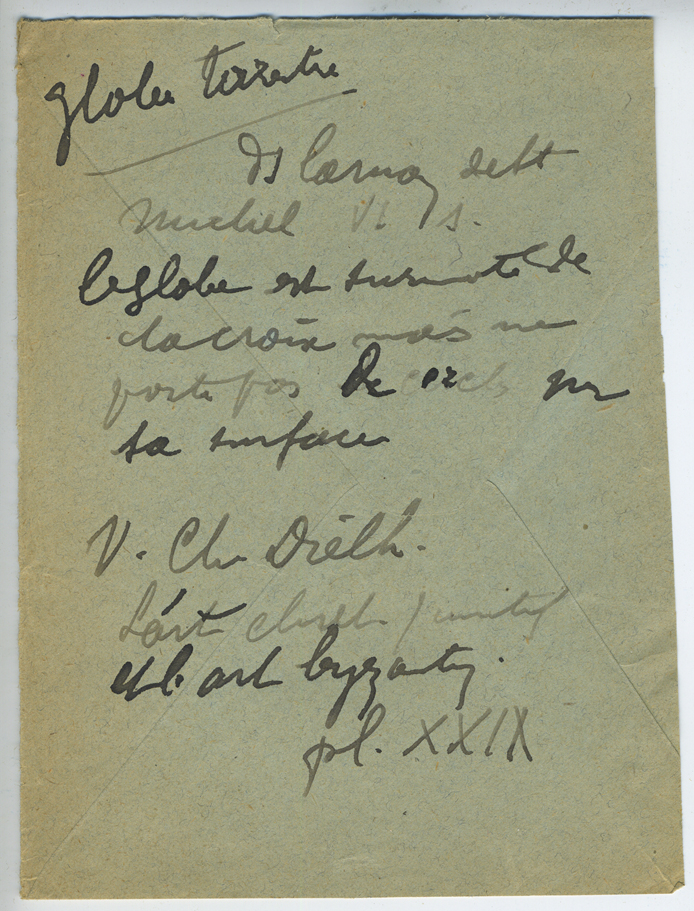 globe terrestre
Ds la main de St
Michel VI s.
le globe est surmonté de
la croix mais ne
porte pas de cercle sur
sa surface
V. Ch. Diehl.
L'art chret. primitif
et l'art byzantin.
pl. XXIX